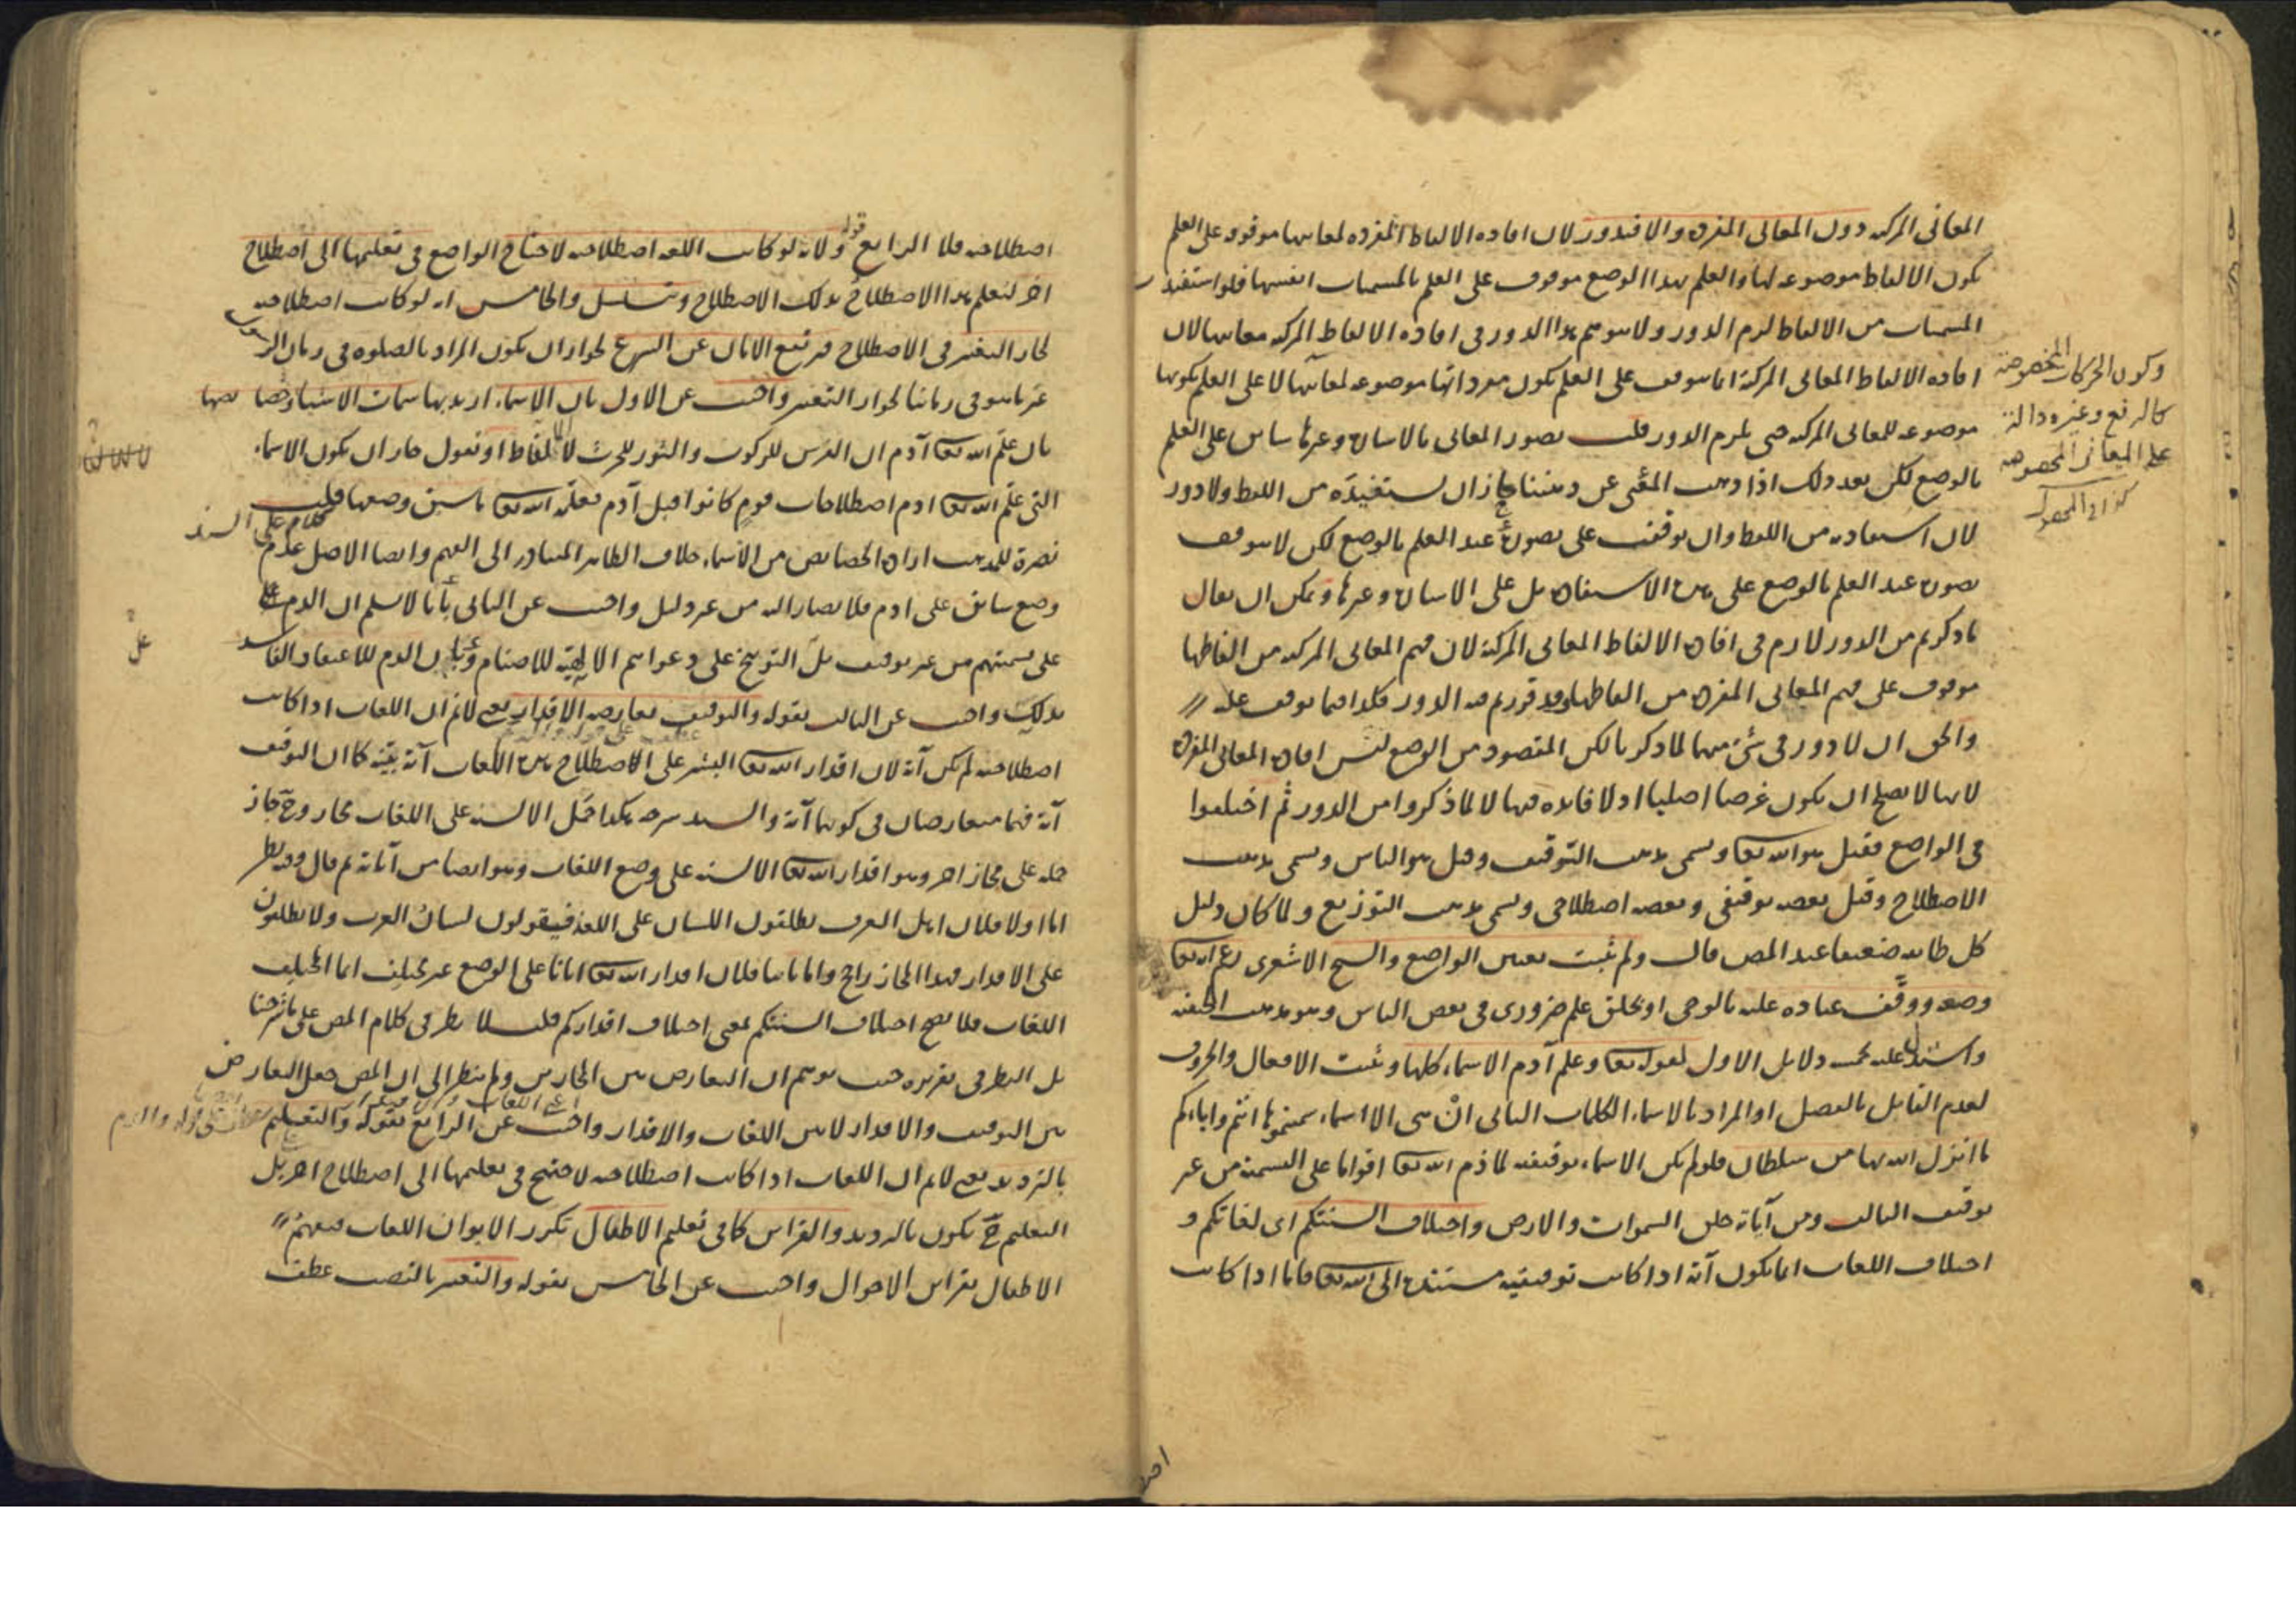 المعانى المركبه دون المعانى المفردة والا فيدور لان افاده الالفاظ المفرده لمعانيها موقوف على العلم
بكون الالفاظ موضوعه لها والعلم بهذا الوضع موقوف على العلم بالمسميات انفسها فلو استفيدت
المسميات من الالفاظ لزم الدور ولا يتوهم هذا الدور فى افاده الالفاظ المركبه معانيها لان
افاده الالفاظ المعانى المركبة انما يتوقف على العلم بكون مفرداتها موضوعه لمعانيها لا على العلم بكونها
موضوعه للمعانى المركبه حتى يلزم الدور قلت تصور المعانى بالاشارة وغيرها سابق على العلم
بالوضع لكن بعد ذلك اذا ذهب المعنى عن ذهننا جاز ان نستفيده من اللفظ ولا دور
لان استفادته من اللفظ وان توقفت على تصوره عند العلم بالوضع لكن لا يتوقف
تصوره عند العلم بالوضع على هذه الاستفادة بل على الاشارة وغيرها ويمكن ان يقال
ما ذكرتم من الدور لازم فى افادة الالفاظ المعانى المركبة لان فهم المعانى المركبه من الفاظها
موقوف على فهم المعانى المفردة من الفاظها وقد قررتم فيه الدور فكذا فيما يتوقف عليه
والحق ان لا دور فى شئ منهما لما ذكرنا لكن المقصود من الوضع ليس افادة المعانى المفردة
لانها لا يصلح ان يكون غرضا اصليا اذ لا فايده فيها لا لما ذكروا من الدور ثم اختلفوا
فى الواضع فقيل هو الله تعا ويسمى مذهب التوقيف وقيل هو الناس ويسمى مذهب
الاصطلاح وقيل بعضه توقيفى وبعضه اصطلاحى ويسمى مذهب التوزيع ولما كان دليل
كل طايفة ضعيفا عند المص قال ولم يثبت تعيين الواضع والشيخ الاشعرى زعم انه تعا
وضعه ووقف عباده عليه بالوحى او بخلق علم ضرورى فى بعض الناس وهو مذهب
واستدل عليه بخمسة دلايل الاول لقوله تعا وعلم آدم الاسماء كلها وثبت الافعال والحروف
لعدم القايل بالفصل او المراد بالاسماء الكلمات الثانى ان هى الا اسماء سميتموها انتم واباؤكم
ما انزل الله بها من سلطان فلو لم يكن الاسماء توقيفيه لما ذم الله تعا اقواما على التسمية من غير
توقيف الثالث ومن آياته خلق السموات والارض واختلاف السنتكم اى لغاتكم و
اختلاف اللغات انما يكون آية اذا كانت توقيفية مستندة الى الله تعا فاما اذا كانت
وكون الحركات المخصوصه
كالرفع وغيره دالة
على المعانى المخصوصه
اصطلاحيه فلا الرابع قوله ولانه لو كانت اللغه اصطلاحيه لاحتاج الواضع فى تعليمها الى اصطلاح
اخر ليعلم هذا الاصطلاح بذلك الاصطلاح ويتسلسل والخامس انه لو كانت اصطلاحيه
لجاز التغيير فى الاصطلاح فيرتفع الامان عن الشرع لجواز ان يكون المراد بالصلوه فى زمان الرسول
غير ما هو فى زماننا لجواز التغيير واجيب عن الاول بان الاسماء اريد بها سمات الاشياء وخصايصها
بان علم الله تعا آدم ان الفرس للركوب والثور للحرث لا الالفاظ او نقول جاز ان يكون الاسماء
التى علم الله تعا ادم اصطلاحات قوم كانوا قبل آدم فعلمه الله تعا ما سبق وضعها قلت
نصرة للمذهب ارادة الخصايص من الاسماء خلاف الظاهر المتبادر الى الفهم وايضا الاصل عدم
كلام على السند
وضع سابق على ادم فلا يصار اليه من غير دليل واجيب عن الثانى بانا لا نسلم ان الذم على
على تسميتهم من غير توقيف بل التوبيخ على دعواهم الالهية للاصنام وبان الذم للاعتقاد الفاسد
بذلك واجيب عن الثالث بقوله والتوقيف يعارضه الاقدار يعنى لا نم ان اللغات اذا كانت
اصطلاحيه لم يكن آية لان اقدار الله تعا البشر على الاصطلاح بهذه اللغات آية بينة كما ان التوقيف
آية فهما متعارضان فى كونهما آية والسيد شرحه هكذا حمل الالسنه على اللغات مجاز وح جاز
حمله على مجاز اخر وهو اقدار الله تعا الالسنه على وضع اللغات وهو ايضا من آياته ثم قال وفيه نظر
اما اولا فلان اهل العرف يطلقون اللسان على اللغة فيقولون لسان العرب ولا يطلقون
على الاقدار فهذا المجاز راجح واما ثانيا فلان اقدار الله تعا ايانا على الوضع غير مختلف انما المختلف
اللغات فلا يصح اختلاف السنتكم بمعنى اختلاف اقداركم قلت لا نظر فى كلام المص على ما شرحنا
بل النظر فى تقريره حيث توهم ان التعارض بين المجازين ولم ينظر الى ان المص جعل التعارض
بين التوقيف والاقدار لا بين اللغات والاقدار واجيب عن الرابع بقوله والتعليم
بالترديد يعنى لا نم ان اللغات اذا كانت اصطلاحيه لاحتيج فى تعليمها الى اصطلاح اخر بل
التعليم ح يكون بالترديد والقراين كما فى تعليم الاطفال تكرر الابوان اللغات فيفهم
الاطفال بقراين الاحوال واجيب عن الخامس بقوله والتغيير بالنصب عطف